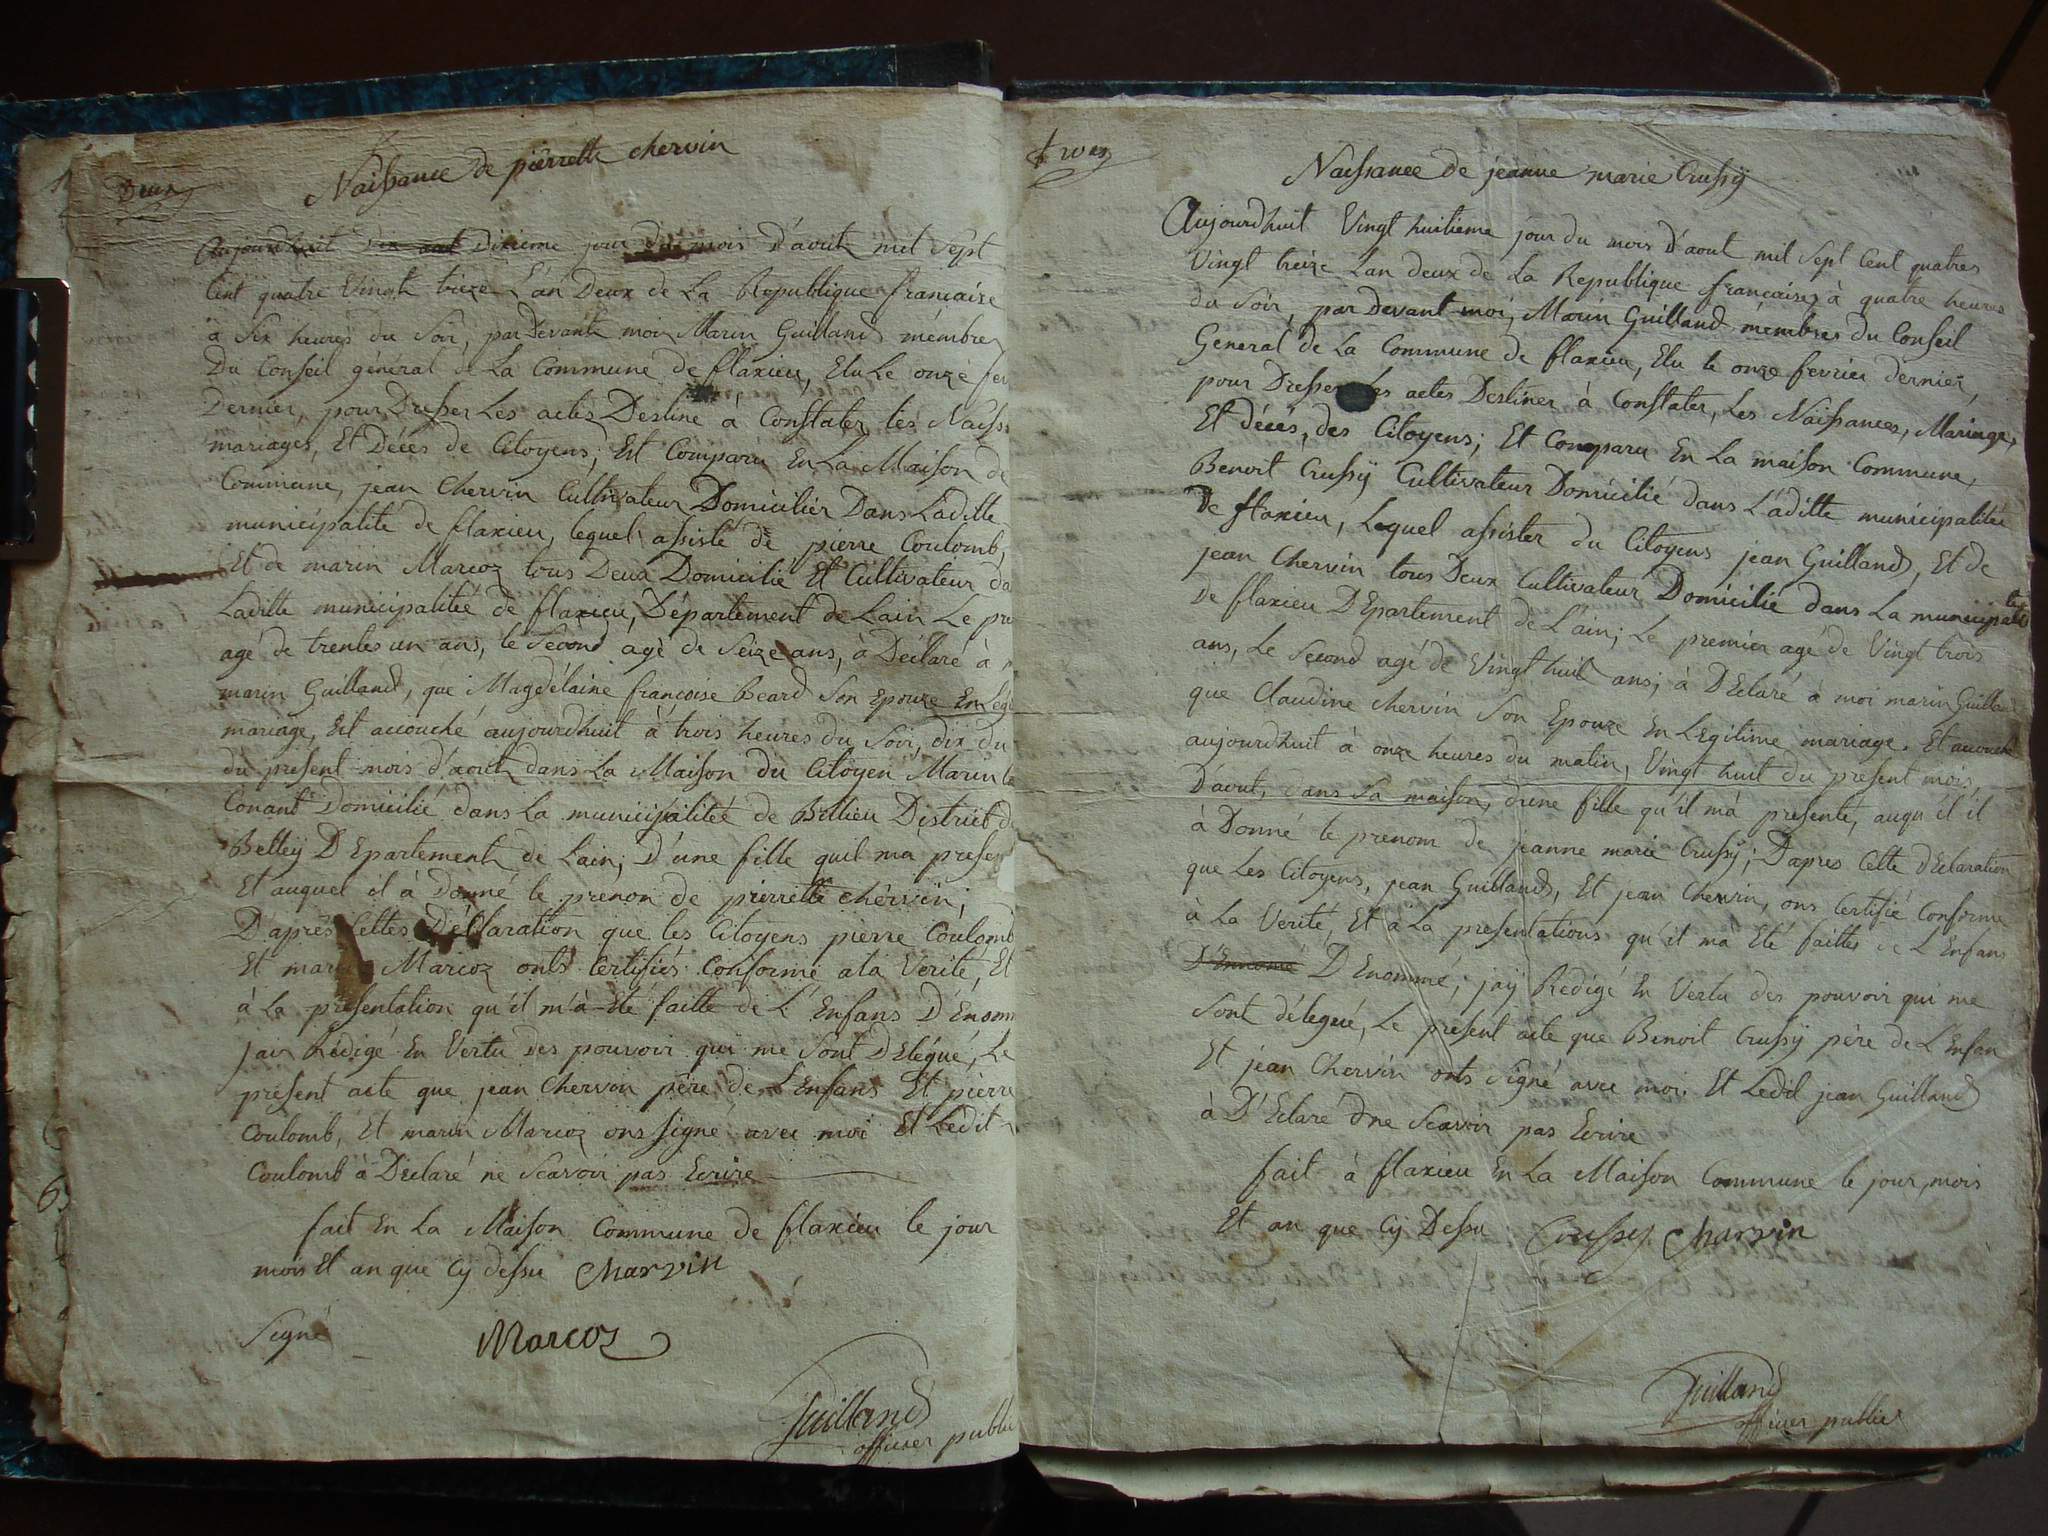 Deux
Naissance de pierrette chervin
Aujourdhuit dixieme jour du mois D'aout mil Sept
Cent quatre Vingt treze L'an Deux de La Republique francaise
à Six heures du Soir, pardevant moi Marin Guilland mémbre
Du Conseil général de La Commune de flaxieu, Elu Le onze fev
Dernier, pour Dresser Les actes Destine à Constater les Naiss
mariages, Et Décés de Citoyens; Est Comparu En La Maison de
Commune, jean Chervin Cultivateur Domicilier Dans Laditte
municipalité de flaxieu, lequel assisté de pierre Coulomb,
Et de marin Marcoz tous Deux Domicilié Et Cultivateur da
Laditte municipalitée de flaxieu, Département de Lain Le pre
agé de trentes un ans, le Second agé de Seize ans, à Déclaré à m
marin Guilland, que Magdélaine françoise Beard Son Epouze En Légi
mariage, Est accouché aujourdhuit à trois heures du Soir, dix du
du present mois d'aout dans La Maison du Citoyen Marin
Conant Domicilié dans La municipalitée de Billieu District de
Belley DEpartement de Lain; D'une fille quil ma presen
Et auquel il à Donné le prenon de pierrette chervin;
D'aprés Cettes Déclaration que les Citoyens pierre Coulomb
Et marin Marcoz onts Certifiés Conforme ala Verité, Et
à La présentation qu'il m'à Eté faitte de L'Enfans D'Enomm
jai Rédigé En Vertu des pouvoir qui me Sont Délégué, Le
présent acte que jean Chervon père de L'Enfans Et pierre
Coulomb, Et marin Marcoz ons signé avec moi Et Ledit
Coulomb à Déclaré ne Scavoir pas Ecrire
fait En La Maison Commune de flaxieu le jour
mois Et an que Cy dessu Charvin
Signé Marcoz
Guilland
officier public
trois
Naissance de jeanne marie Crussÿ
Aujourdhuit Vingt huitieme jour du mois D'aout mil Sept Cent quatres
Vingt treize Lan deux de La Republique francaise, à quatre heures
du Soir, par Devant moi, Marin Guilland mémbres du Conseil
General de La Commune de flaxieu, Elu le onze fevrier dernier,
pour Dresser Les actes Destiner à Constater, Les Naissances, Mariage,
Et décés, des Citoyens; Et Comparu En La maison Commune,
Benoit Crussÿ Cultivateur Domicilié dans L'aditte municipalitée
De flaxieu, Lequel assister du Citoyens jean Guilland, Et de
jean Chervin tous Deux Cultivateur Domicilié dans La municipalité
de flaxieu DEpartement de L'ain; Le premier agé de Vingt trois
ans, Le Second agé de Vingt huit ans; à DEclaré à moi marin Guilland
que Claudine chervin Son Epouze En Legitime mariage. Et accouché
aujourdhuit à onze heures du matin, Vingt huit du present mois
D'aout, dans Sa maison, dune fille qu'il mà presenté, auqu'el il
à Donné le prenom de jeanne marie Crussÿ; Dapres Cette dEclaration
que Les Citoyens, jean Guilland, Et jean Chervin, ons Certifié Conforme
à La Verité, Et à La presentations qu'il mà Eté faittes de L'Enfans
D'Ennomé DEnommé; jaÿ Redigé En Vertu des pouvoir qui me
Sont délegué, Le present acte que Benoit Crussÿ père de L'Enfan
Et jean Chervin onts signé avec moi. Et Ledit jean Guilland
à D'Eclaré dne Scavoir pas Ecrire
fait à flaxieu En La Maison Commune le jour, mois
Et an que Cy Dessu Crussy Charvin
Guilland
officier public